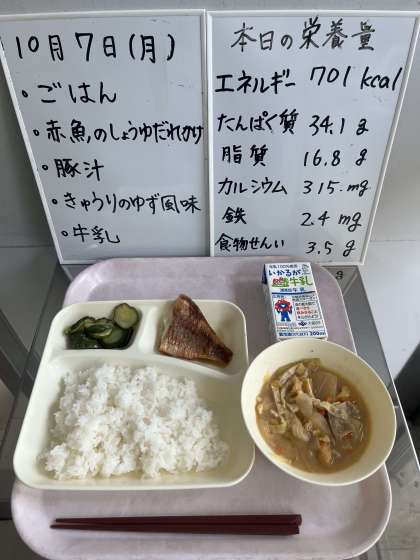 10月7日(月)
・ごはん
・赤魚のしょうゆだれかけ
・豚汁
・きゅうりのゆず風味
・牛乳
本日の栄養量
エネルギー 701 kcal
・たんぱく質 34.1 g
・脂質 16.8 g
・カルシウム 315 mg
・鉄 2.4 mg
・食物せんい 3.5 g
いかるが
牛乳
200ml